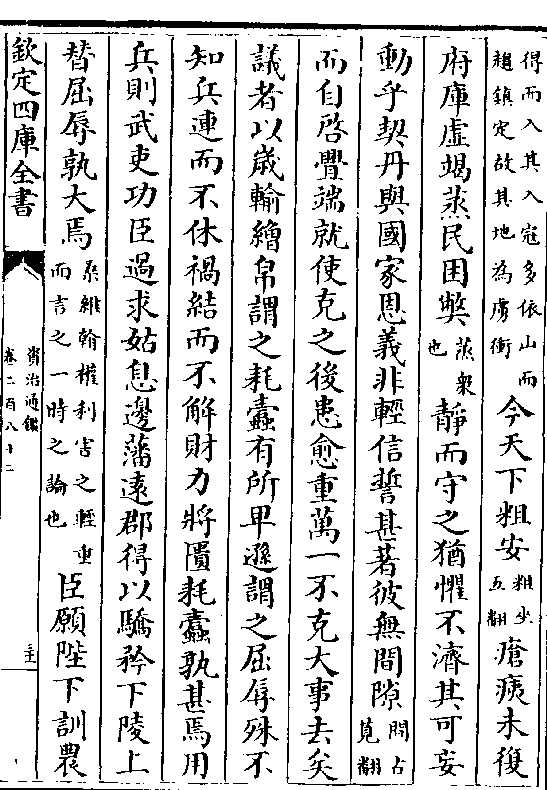 得而入其入寇多依山而
趙鎮定故其地為虜衝
今天下粗安
粗坐
五翻
瘡痍未復
府庫虛竭蒸民困弊
蒸衆
也
靜而守之猶懼不濟其可妄
動乎契丹與國家恩義非輕信誓甚著彼無間隙
間古
莧翻
而自啓釁端就使克之後患愈重萬一不克大事去矣
議者以歲輸繒帛謂之耗蠧有所卑遜謂之屈辱殊不
知兵連而不休禍結而不解財力將匱耗蠧孰甚焉用
兵則武吏功臣過求姑息邊藩遠郡得以驕矜下陵上
替屈辱孰大焉
桑維翰權利害之輕重
而言之一時之論也
臣願陛下訓農
欽定四庫全書
資治通鑑
卷二百八十二